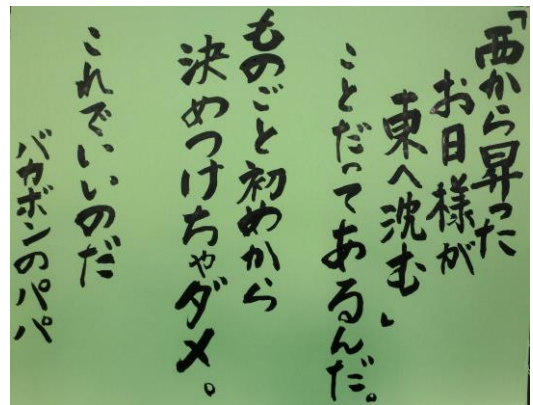 「西から昇った
お日様が
東へ沈む」
ことだってあるんだ。
ものごと初めから
決めつけちゃダメ。
これでいいのだ
バカボンのパパ